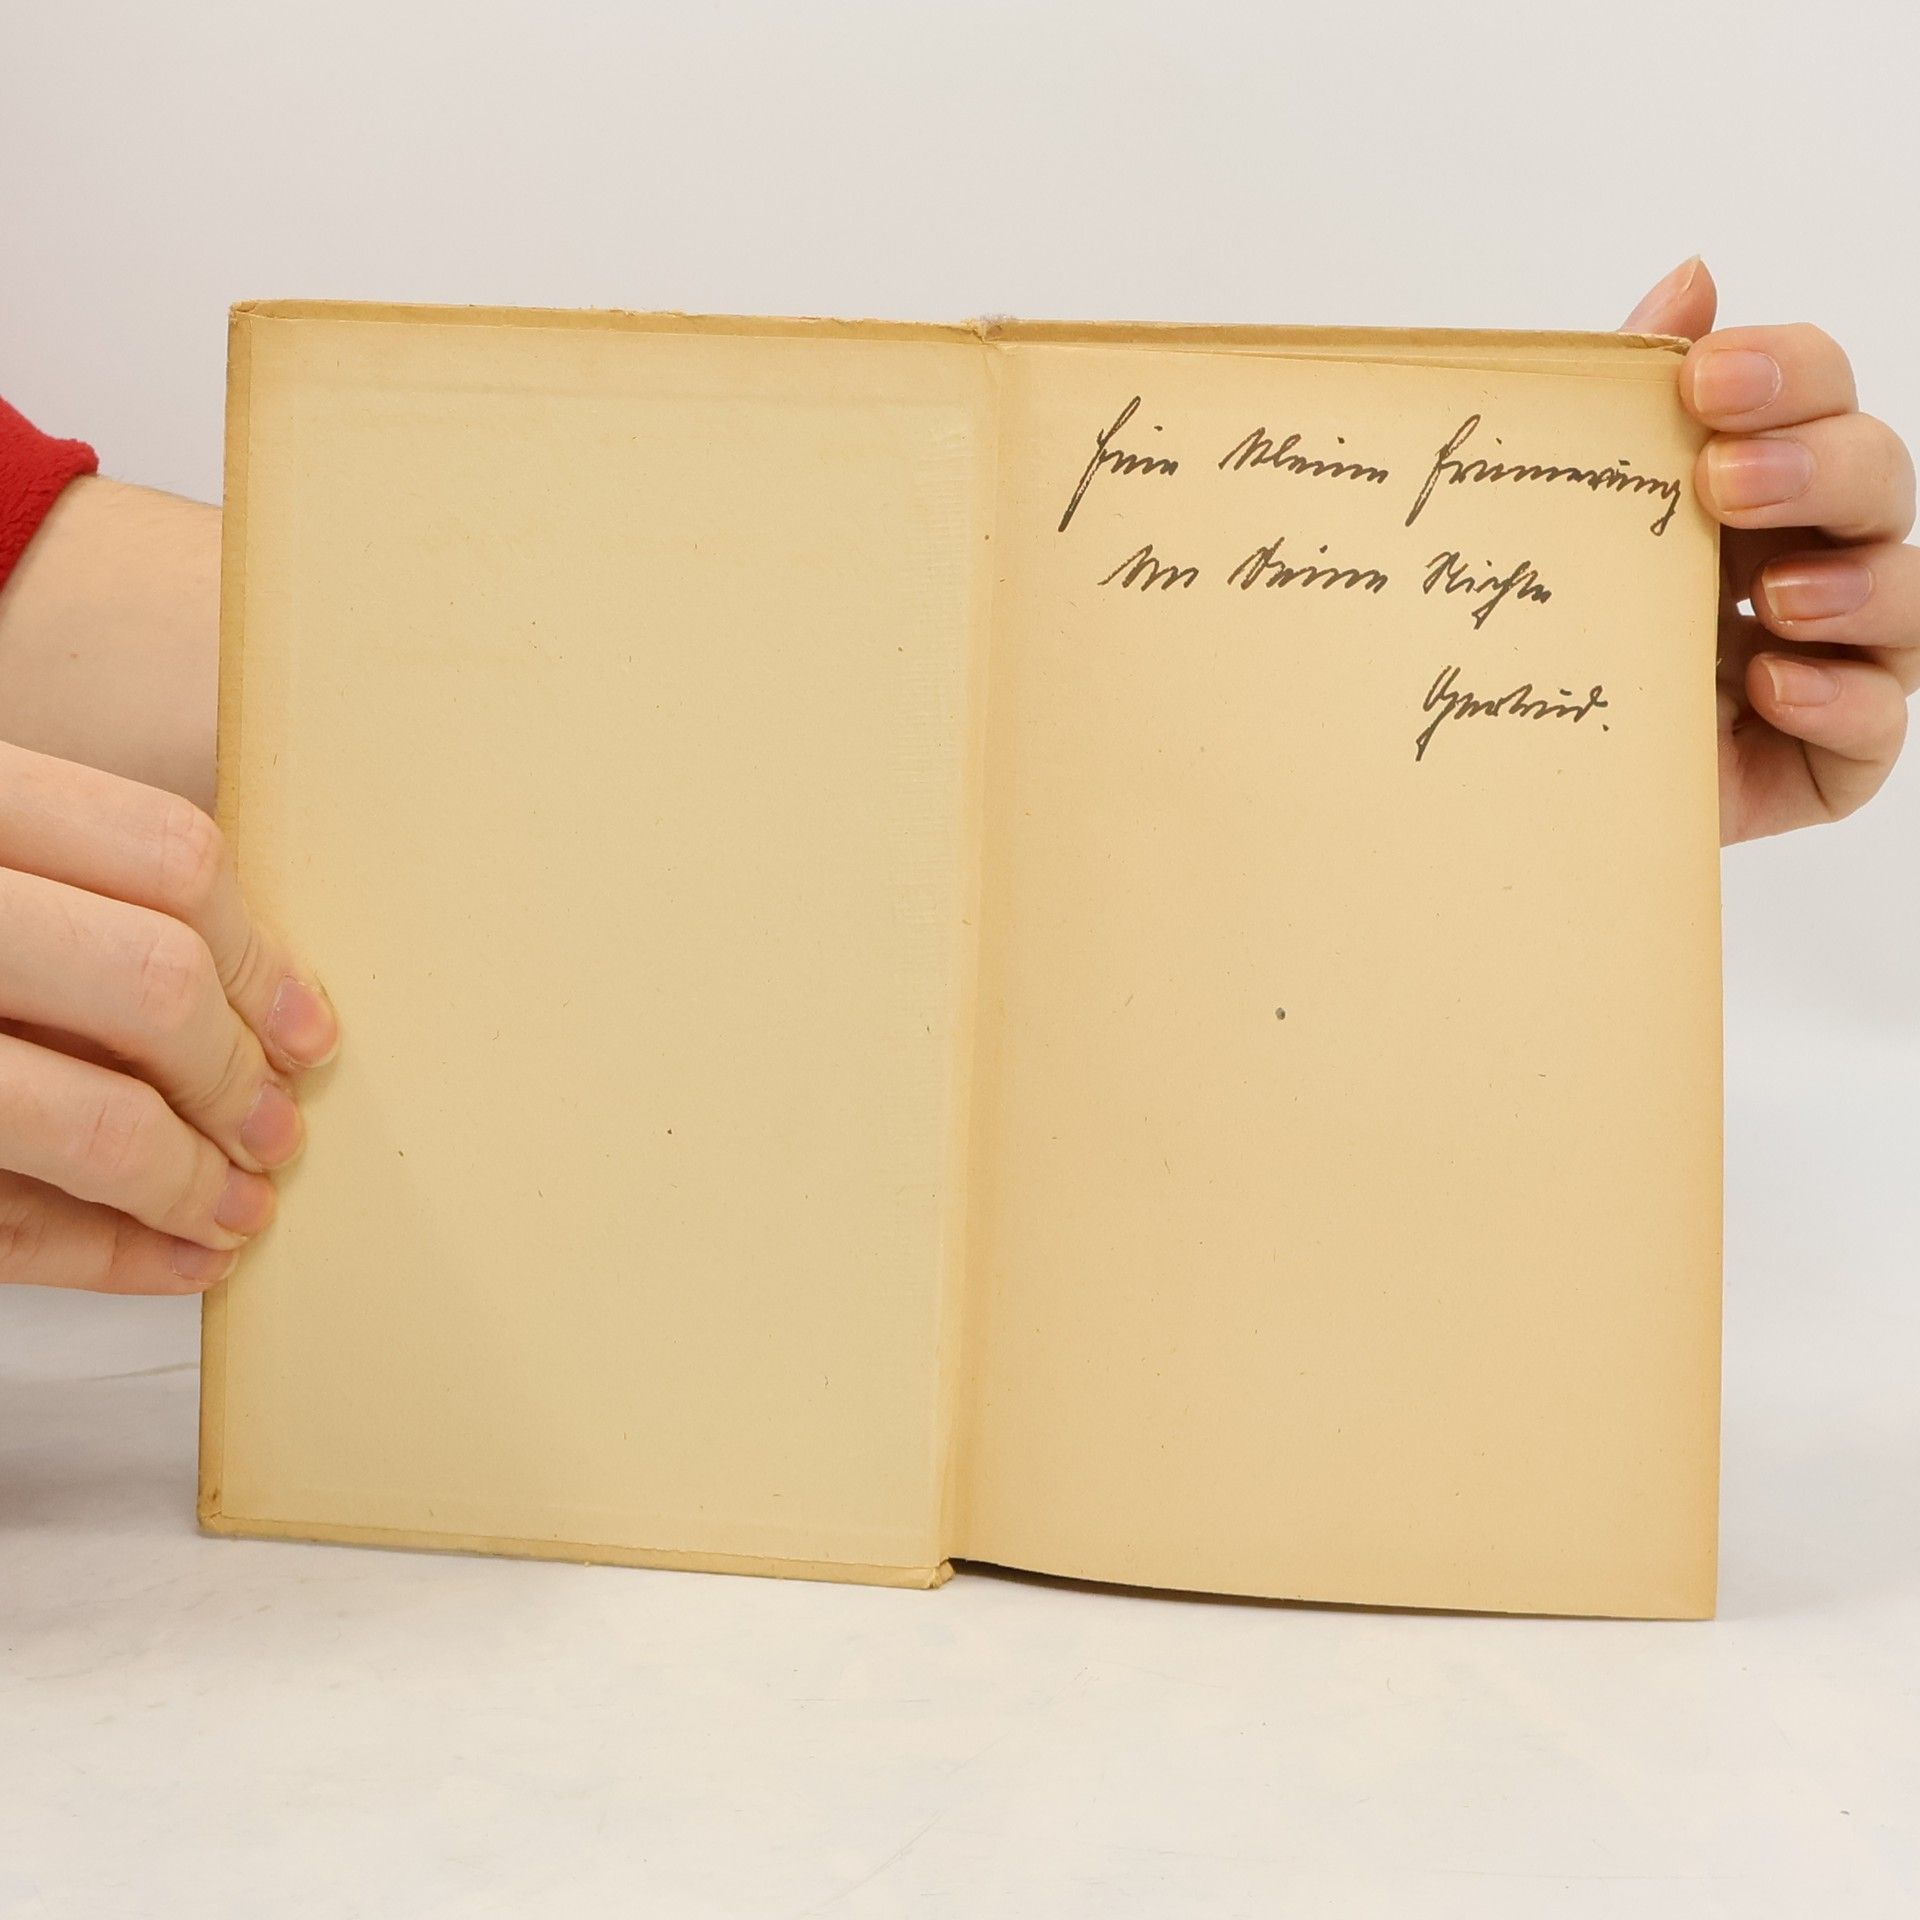 Eine kleine Erinnerung
an Deine Nichte
Gertrud.